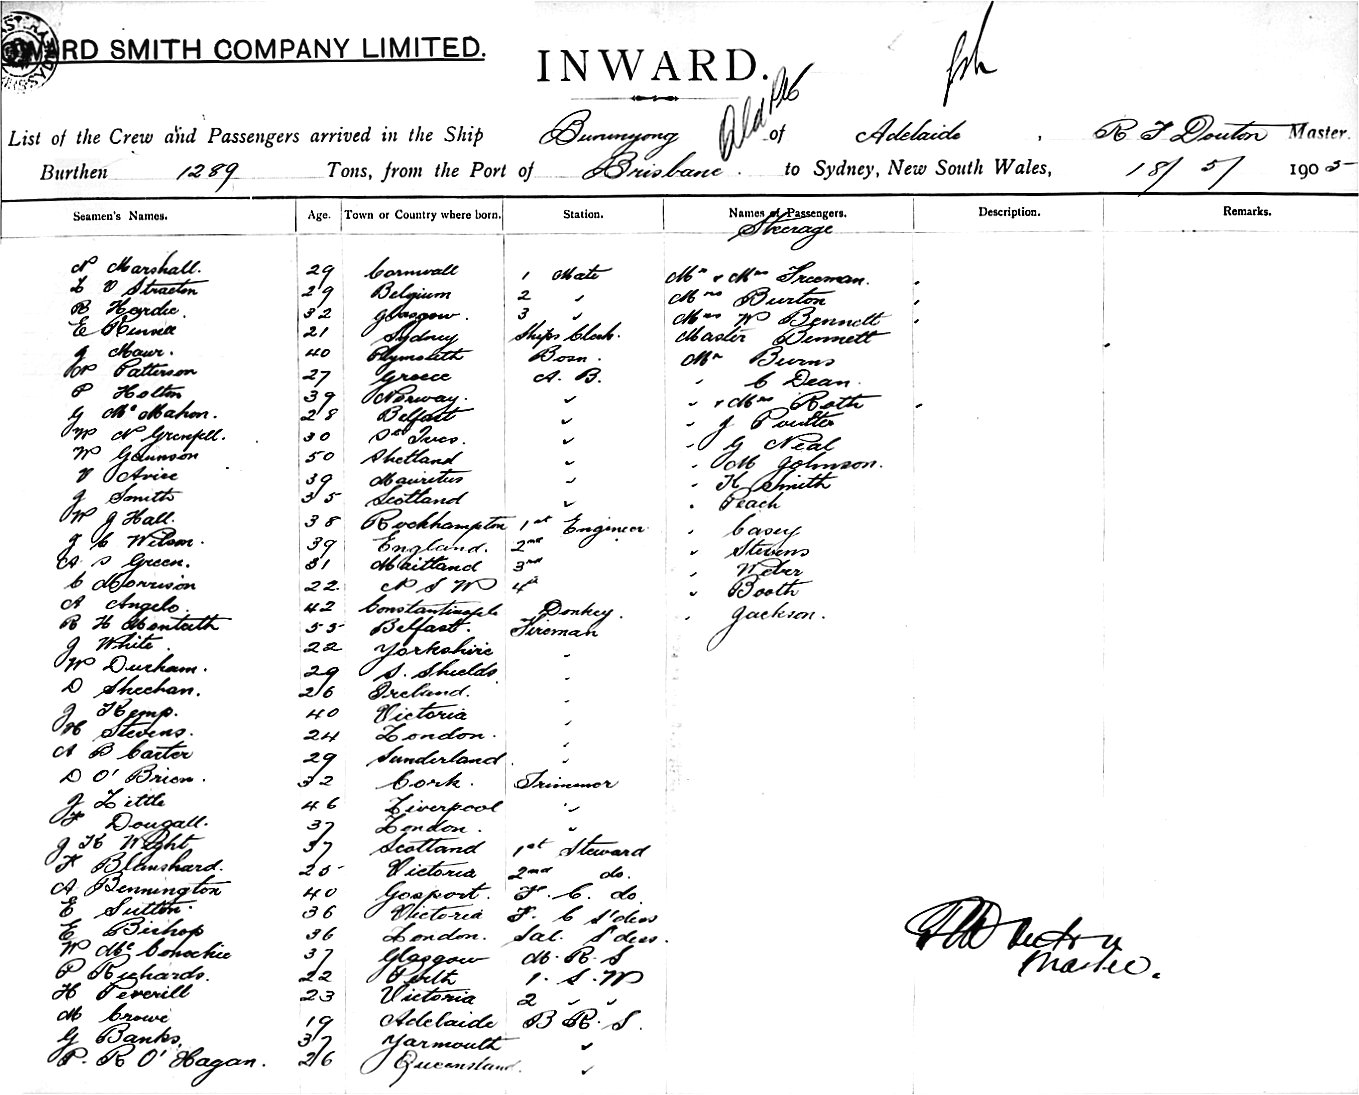 WARD SMITH COMPANY LIMITED.
INWARD.
List of the Crew and Passengers arrived in the Ship Buninyong of Adelaide, R F Douton Master.
Burthen 1289 Tons, from the Port of Brisbane. to Sydney, New South Wales, 18/5/ 1905
Seamen's Names. Age. Town or Country where born. Station. Names of Passengers. Description. Remarks.
Steerage
N Marshall. 29 Cornwall 1 Mate Mr & Mrs Freeman.
L V Straeten 29 Belgium 2 " Mrs Burton
R Hardie. 32 Glasgow. 3 " Mrs W Bennett
E 21 Sydney Ships Clerk. Master Bennett
J Maur. 40 Plymouth Bosn. Mr Burns
W Patterson 27 Greece A. B. " C Dean.
P Holton 39 Norway. " " & Mrs Roth
G McMahon. 28 Belfast " " J Poulter
W N Grenfell. 30 St Ives. " " G Neal
W Gaunson 50 Shetland " " M Johnson.
V Avice 39 Mauritus " " K Smith
J Smith 35 Scotland " " Peach
W J Hall. 38 Rockhampton 1st Engineer " Casey
J C Wilson. 39 England. 2nd " Stevens
A S Green. 31 Maitland 3rd " Weber
C Morrison 22 N S W 4th " Booth
A Angelo. 42 Constantinople Donkey. " Jackson.
R H Monteith 55 Belfast. Fireman
J White. 22 Yorkshire "
W Durham. 29 S. Shields "
D Sheehan. 26 Ireland. "
J Kemp. 40 Victoria "
H Stevens. 24 London. "
A B Carter 29 Sunderland "
D O'Brien. 32 Cork. Trimmer
J Little 46 Liverpool "
F Dougall. 37 London. "
J K Wright 37 Scotland 1st Steward
F Blanshard. 25 Victoria 2nd do.
A Bennington 40 Gosport. F. C. do.
E Sutton. 36 Victoria F. C S'dess
E Bishop 36 London. Sal. S'dess.
W McConochie 37 Glasgow M. R. S
P Richards. 22 Perth 1. S. W
H Peverill 23 Victoria 2 " "
M Crowe 19 Adelaide B R. S.
G Banks. 37 Yarmouth "
P. R O'Hagan. 26 Queensland. "
Master.